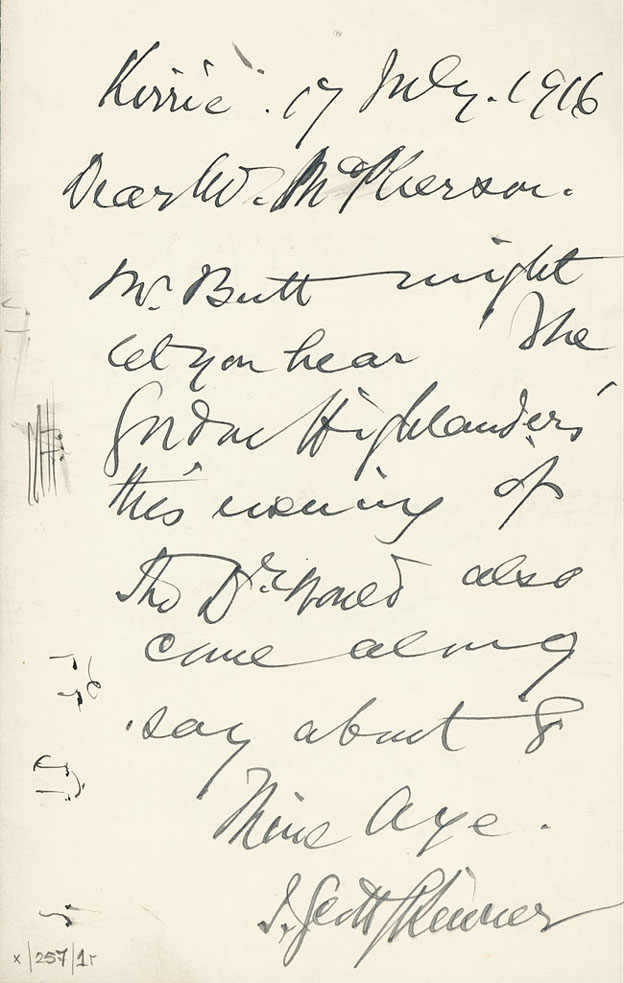 Kirrie. 17 July. 1916
Dear Mr. McPherson.
Mr. Butt might
let you hear The
Gordon Highlanders'
this evening if
The Dr. would also
come along
say about 8
Mine Aye.
J. Scott Skinner
x/257/1r